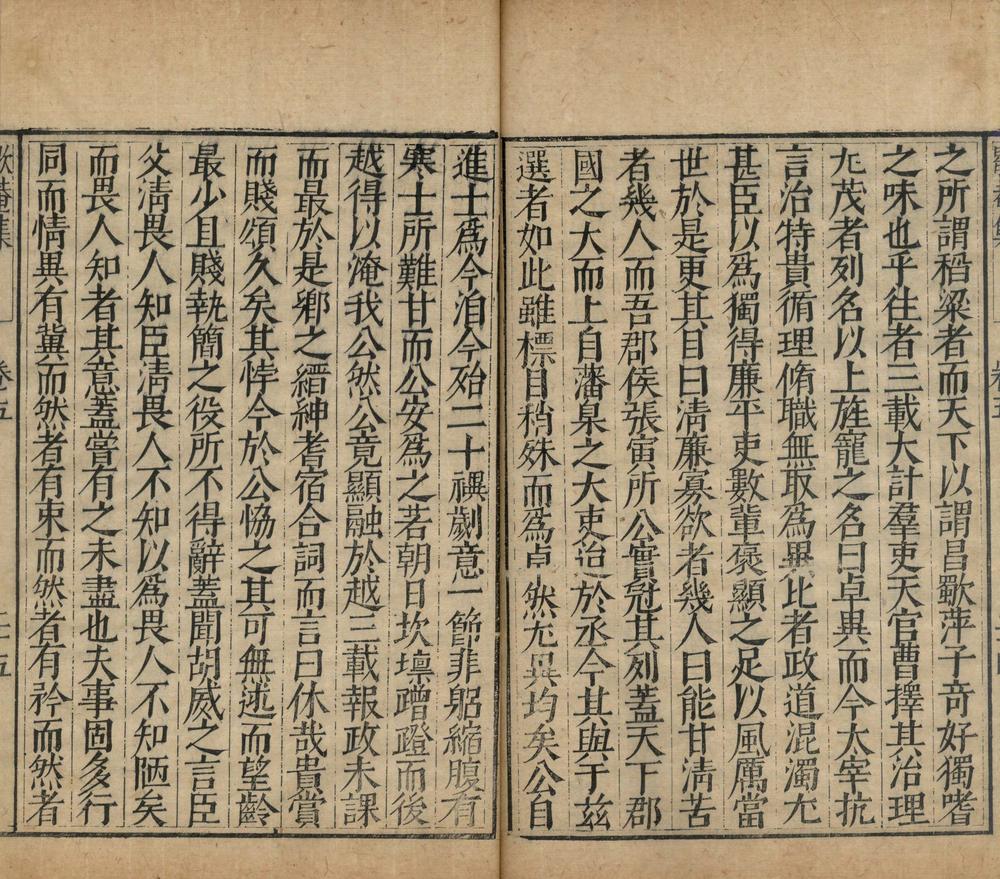 之所謂稻粱者而天下以謂昌歜萍子竒好獨嗜
之味也乎徃者三載大計羣吏天官曹擇其治理
尤茂者列名以上旌寵之名曰卓異而今太宰抗
言治特貴循理脩職無取爲異比者政道混濁尤
甚臣以爲獨得廉平吏數輩褒顯之足以風厲當
世於是更其目曰淸廉寡欲者幾人曰能甘淸苦
者幾人而吾郡侯張寅所公實冠其列蓋天下郡
國之大而上自藩臬之大吏迨於丞令其與于玆
選者如此雖標目稍殊而爲卓然尤異均矣公自
進士爲令洎今殆二十禩勵意一節非躬縮腹有
寒士所難甘而公安爲之若朝日坎壈蹭蹬而後
越得以淹我公然公竟顯融於越三載報政未課
而最於是鄕之縉紳耆宿合詞而言曰休哉貴賞
而賤頌久矣其悖今於公恊之其可無述而望齡
最少且賤執簡之役所不得辭蓋聞胡威之言臣
父淸畏人知臣淸畏人不知以爲畏人不知陋矣
而畏人知者其意蓋嘗有之未盡也夫事固多行
同而情異有冀而然者有束而然者有矜而然者
歇菴集
卷五
二十五